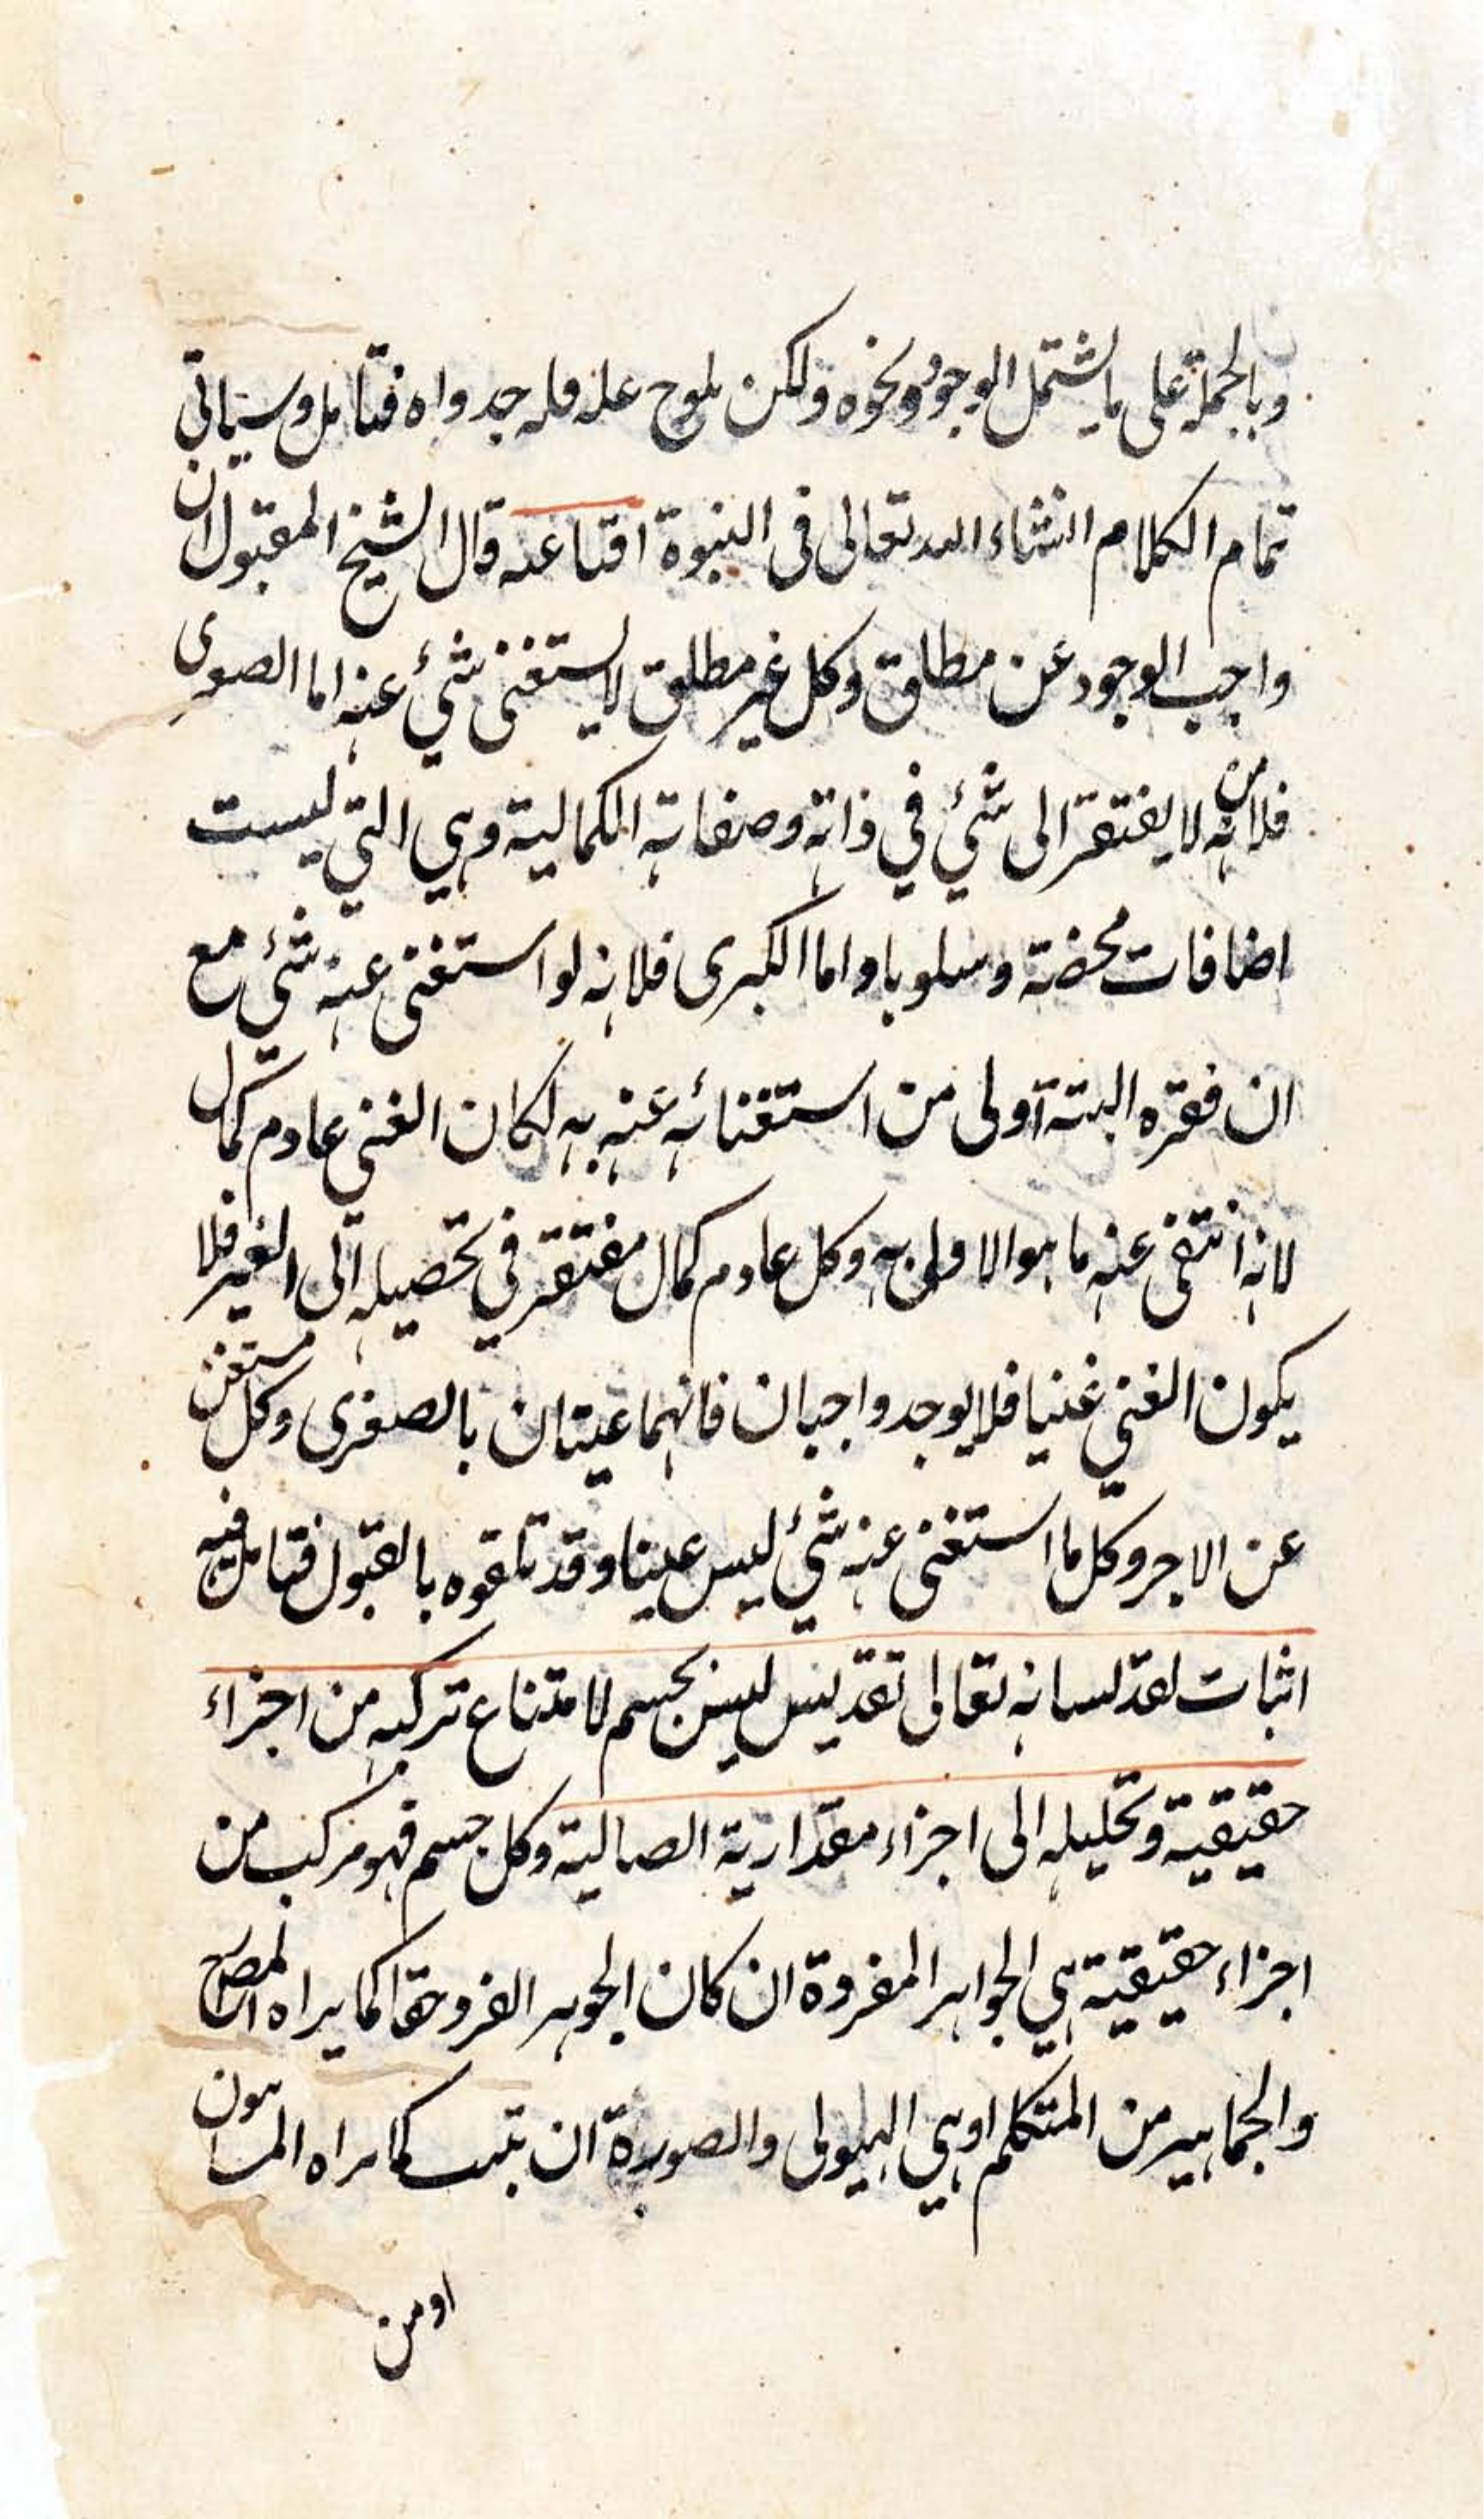 وبالجملة على ما يشتمل الوجود ونحوه ولكن يلوح عليه قلة جدواه فتأمل وسيأتى
تمام الكلام انشاء الله تعالى فى النبوة اقناعه قال الشيخ المقبول ان
واجب الوجود غن مطلق وكل غير مطلق لا يستغنى شئ عنه اما الصغرى
فلانه لا يفتقر الى شئ في ذاته وصفاته الكمالية وهي التي ليست
اضافات محضة وسلوبا واما الكبرى فلانه لو استغنى عنه شئ مع
ان فقره البتة اولى من استغنائه عنه به لكان الغنى عادم كمال
لانه انتفى عنه ما هو الاولى به وكل عادم كمال مفتقر في تحصيله الى الغير فلا
يكون الغني غنيا فلا يوجد واجبان فانهما غنيتان بالصغرى وكل مستغن
عن الاجر وكل ما استغنى عنه شئ ليس غينا وقد تلقوه بالقبول فتامل فيه
اثبات لقدلسانه تعالى تقديس ليس بجسم لامتناع تركبه من اجزاء
حقيقية وتحليله الى اجزاء مقدارية الصالية وكل جسم فهو مركب من
اجزاء حقيقية هي الجواهر المفردة ان كان الجوهر الفرد حقا كما يراه
والجماهير من المتكلم او هي الهيولى والصورة ان تثبت كما يراه المشاءون
او من